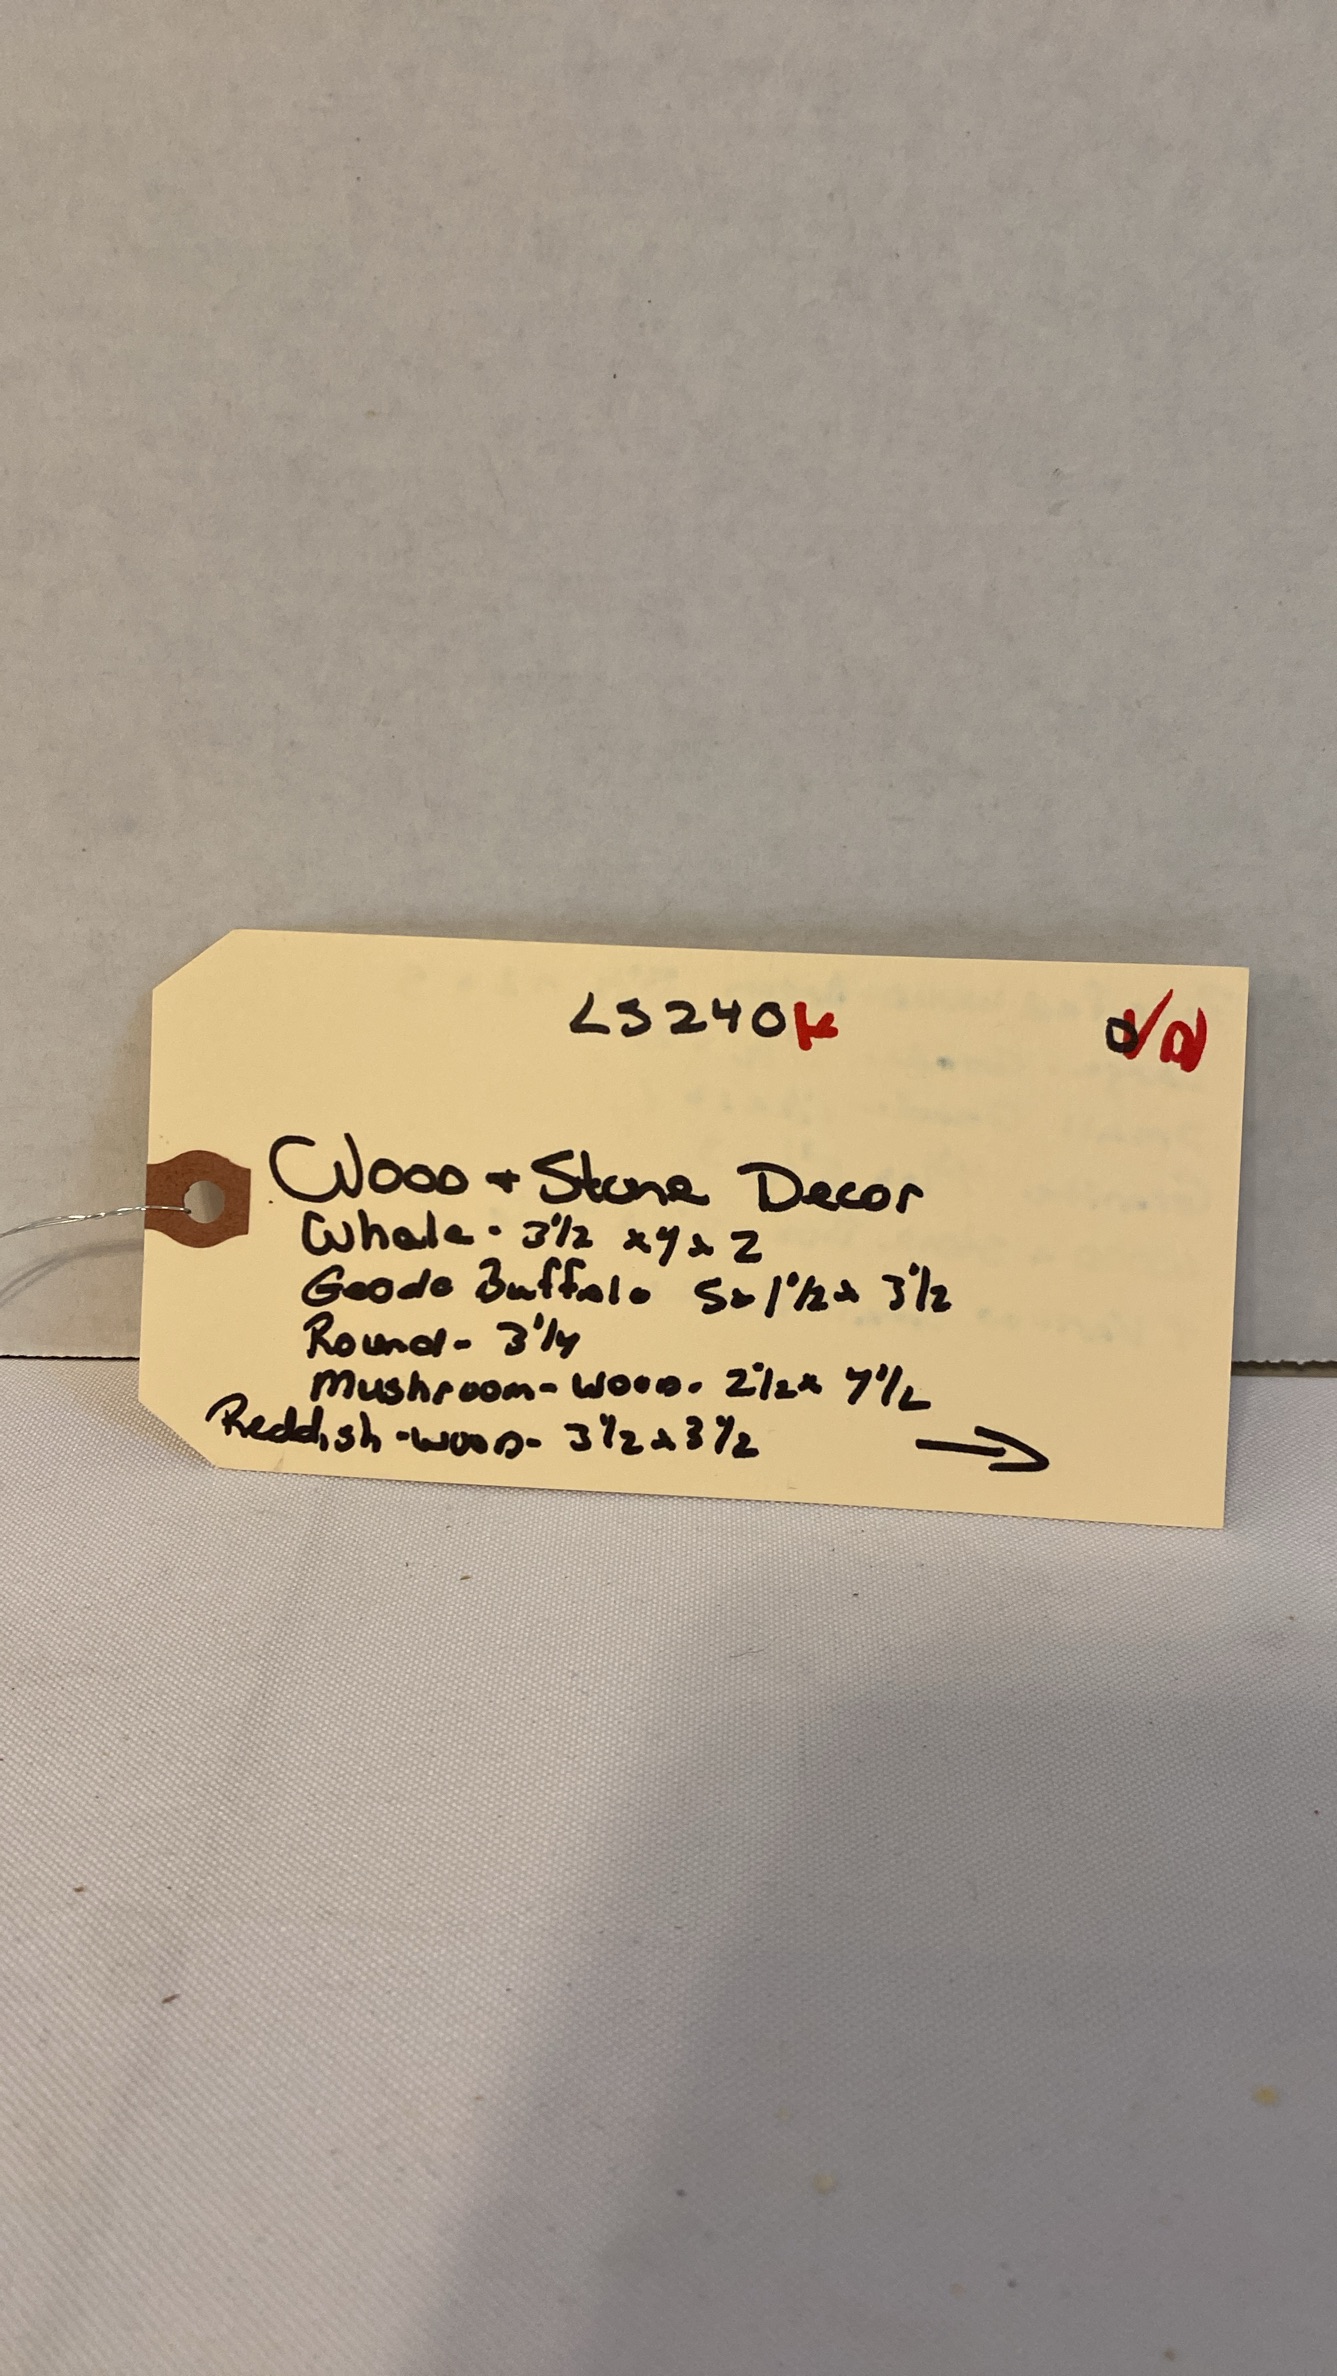 LS240K
Wood + Stone Decor
Whale - 3 1/2 x 4 x 2
Geode Buffalo 5 x 1 1/2 x 3 1/2
Round - 3 1/4
Mushroom - Wood - 2 1/2 x
Reddish - wood - 3 1/2 x 3 1/2